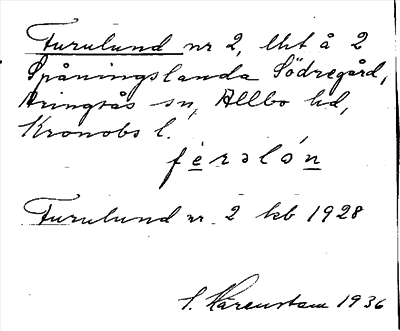 Furulund nr 2, lht å 2
Spåningslanda Södregård,
Aringsås sn, Allbo hd,
Kronobs l.
Furulund nr 2 kb 1928
S. Kärenstam 1936